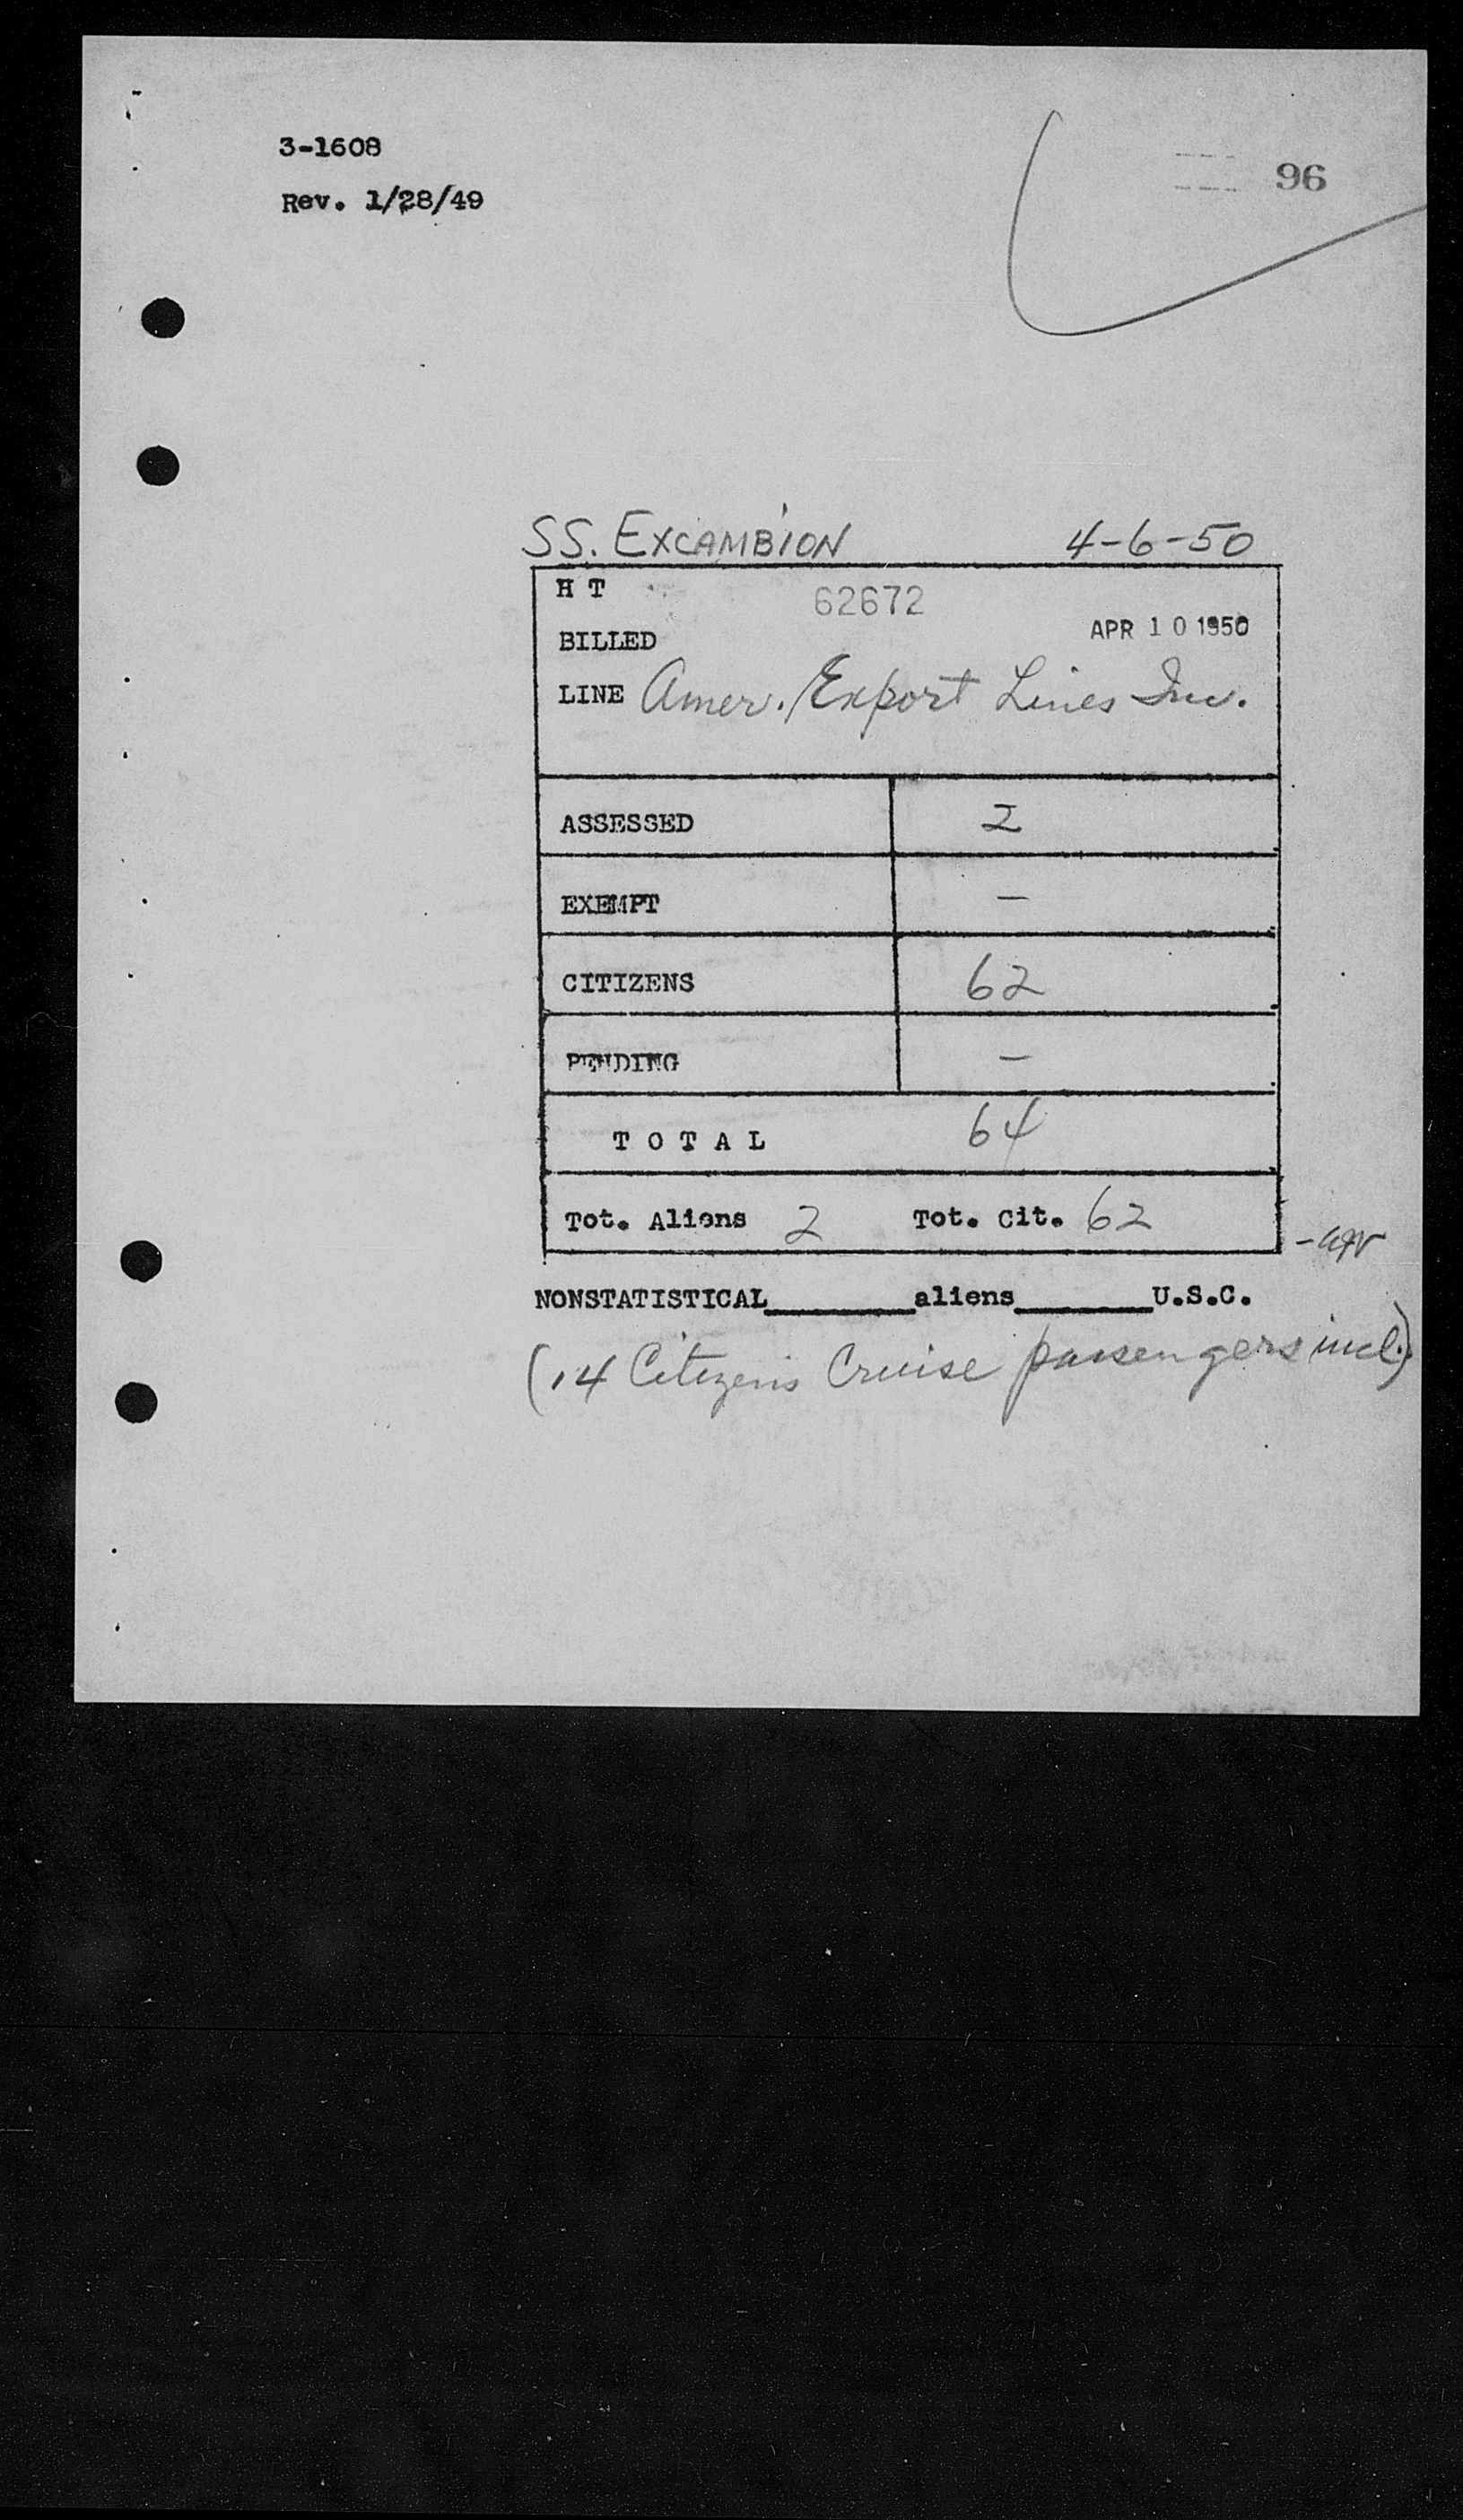 3-1608
96
Rev. 1/28/49
SS. EXCAMBION 4-6-50
H T 62672
BILLED APR 10 1950
LINE Amer. Export Lines Inc.
ASSESSED 2
EXEMPT —
CITIZENS 62
PENDING —
T O T A L 64
Tot. Aliens 2 Tot. Cit. 62
NONSTATISTICAL________aliens________U.S.C.
(14 Citizens Cruise passengers incl.)